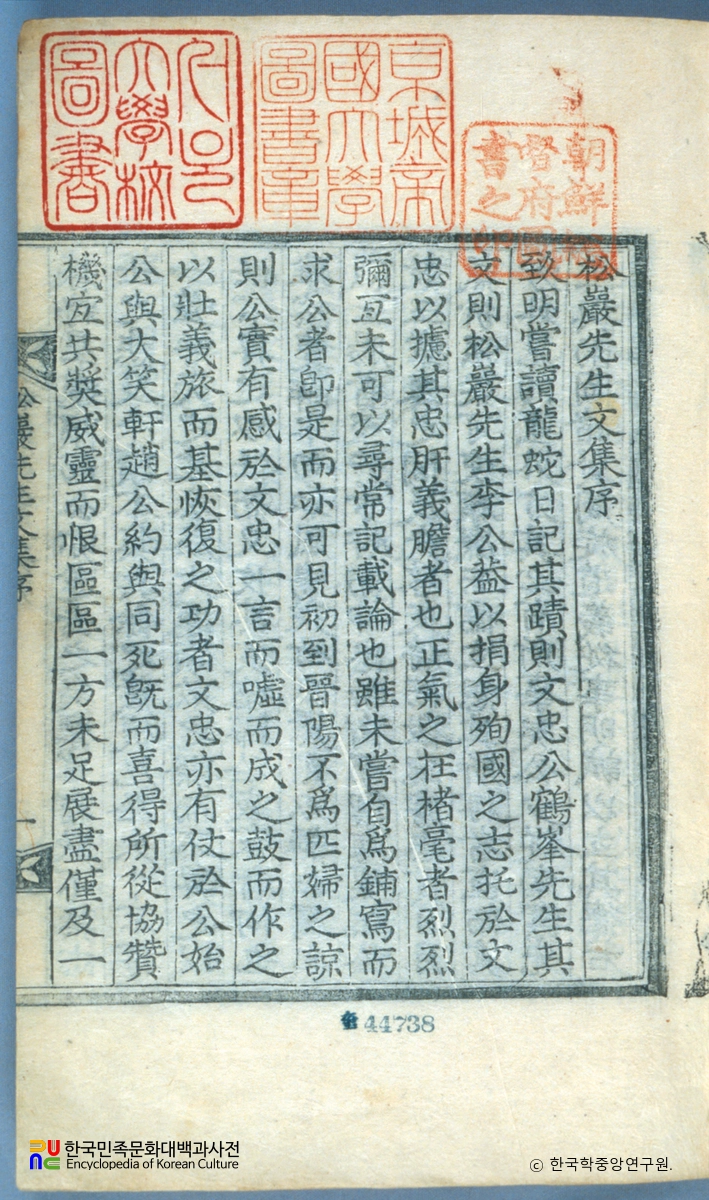 朝鮮總
督府圖
書之印
京城帝
國大學
圖書章
서울
大學校
圖書
松巖先生文集序
致明嘗讀龍蛇日記其蹟則文忠公鶴峯先生其
文則松巖先生李公葢以捐身殉國之志托於文
忠以攄其忠肝義膽者也正氣之在楮毫者烈烈
彌亙未可以尋常記載論也雖未嘗自爲鋪寫而
求公者卽是而亦可見初到晉陽不爲匹婦之諒
則公實有感於文忠一言而噓而成之鼓而作之
以壯義旅而基恢復之功者文忠亦有仗於公始
公與大笑軒趙公約與同死旣而喜得所從協贊
機宜共奬威靈而恨區區一方未足展盡僅及一
松巖先生文集序
一
44738
한국민족문화대백과사전
Encyclopedia of Korean Culture
ⓒ 한국학중앙연구원.